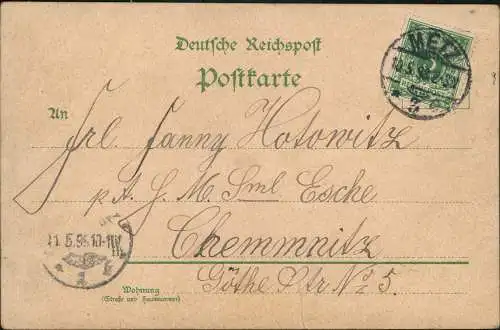 Deutsche Reichspost
Postkarte
METZ
An
Frl. Fanny Hotowitz
p. A. H. M. Sml Esche
Chemmnitz
Göthe Str No. 5.
11.5.96.10-11V.
1
Wohnung
(Straße und Hausnummer)